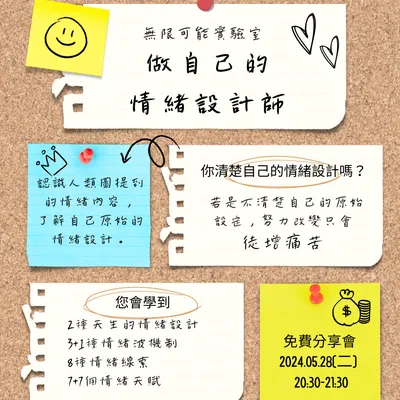 無限可能實驗室
做自己的
情緒設計師
認識人類圖提到
的情緒內容，
了解自己原始的
情緒設計。
你清楚自己的情緒設計嗎？
若是不清楚自己的原始
設定，努力改變只會
徒增痛苦
您會學到
2種天生的情緒設計
3+1種情緒波機制
8種情緒線索
7+7個情緒天賦
免費分享會
2024.05.28(二)
20:30-21:30